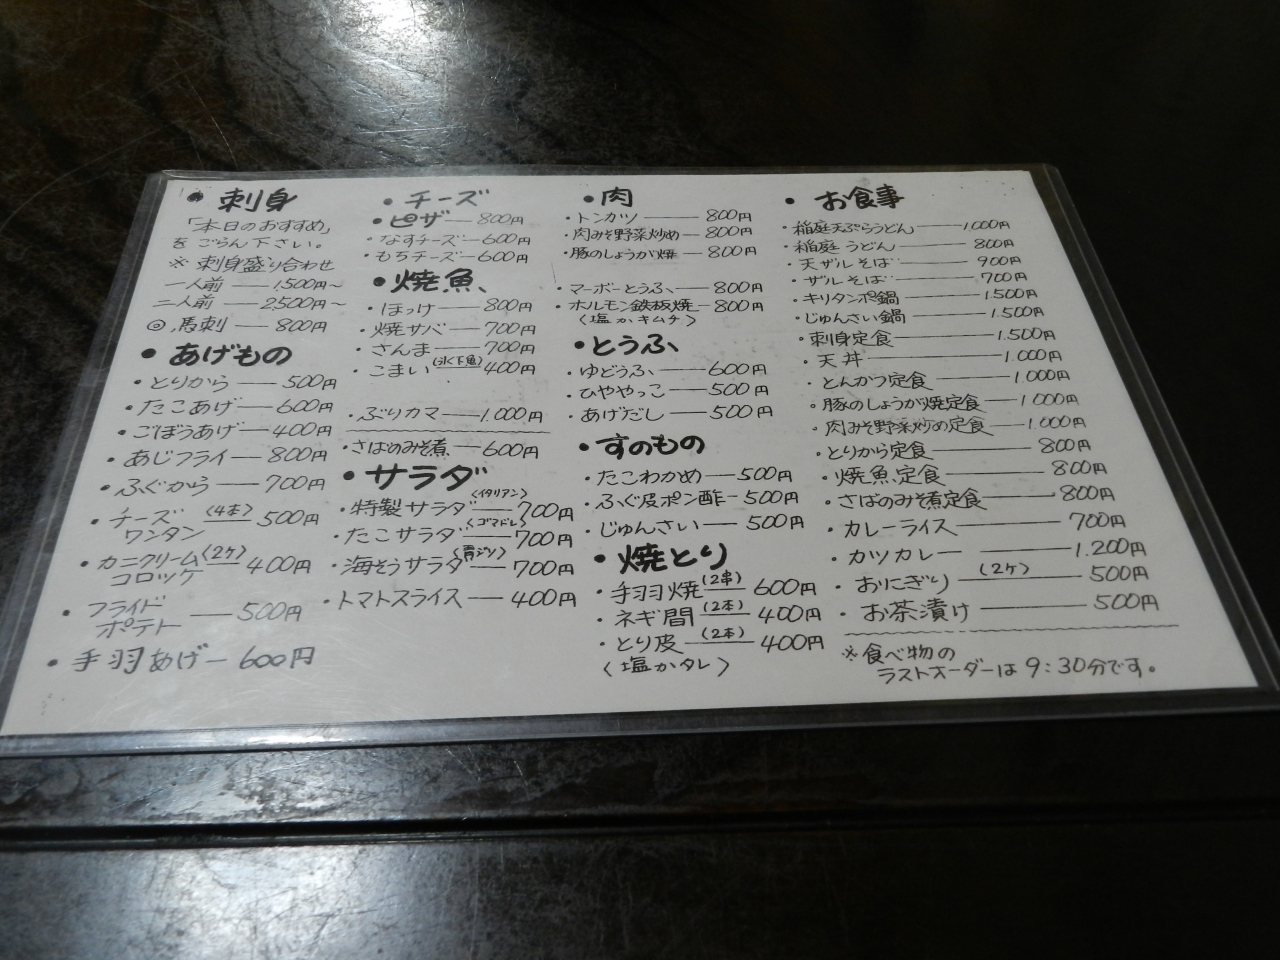 • 刺身
「本日のおすすめ」
をごらん下さい。
※ 刺身盛り合わせ
一人前 ── 1,500円~
二人前 ── 2,500円~
◎ 馬刺 ── 800円
• あげもの
・とりから ── 500円
・たこあげ ── 600円
・ごぼうあげ ── 400円
・あじフライ ── 800円
・ふぐから ── 700円
・チーズ (4本) 500円
ワンタン
・カニクリーム (2ケ) 400円
コロッケ
・フライド ── 500円
ポテト
・手羽あげ ─ 600円
• チーズ
• ピザ ── 800円
・なすチーズ ─ 600円
・もちチーズ ─ 600円
• 焼魚
・ほっけ ── 800円
・焼サバ ── 700円
・さんま ── 700円
・こまい (氷下魚) 400円
・ぶりカマ ── 1,000円
・さばのみそ煮 ─ 600円
• サラダ
・特製サラダ (イタリアン) 700円
・たこサラダ (ゴマドレ) 700円
・海そうサラダ (青ジソ) 700円
・トマトスライス ── 400円
• 肉
・トンカツ ── 800円
・肉みそ野菜炒め ─ 800円
・豚のしょうが焼 ─ 800円
・マーボーとうふ ── 800円
・ホルモン鉄板焼 ─ 800円
(塩かキムチ)
• とうふ
・ゆどうふ ── 600円
・ひややっこ ── 500円
・あげだし ── 500円
• すのもの
・たこわかめ ── 500円
・ふぐ皮ポン酢 ─ 500円
・じゅんさい ── 500円
• 焼とり
・手羽焼 (2串) 600円
・ネギ間 (2本) 400円
・とり皮 (2本) 400円
(塩かタレ)
• お食事
・稲庭天ぷらうどん ── 1,000円
・稲庭うどん ── 800円
・天ザルそば ── 900円
・ザルそば ── 700円
・キリタンポ鍋 ── 1,500円
・じゅんさい鍋 ── 1,500円
・刺身定食 ── 1,500円
・天丼 ── 1,000円
・とんかつ定食 ── 1,000円
・豚のしょうが焼定食 ── 1,000円
・肉みそ野菜炒めの定食 ── 1,000円
・とりから定食 ── 800円
・焼魚定食 ── 800円
・さばのみそ煮定食 ── 800円
・カレーライス ── 700円
・カツカレー ── 1,200円
・おにぎり (2ケ) 500円
・お茶漬け ── 500円
※食べ物の
ラストオーダーは9:30分です。